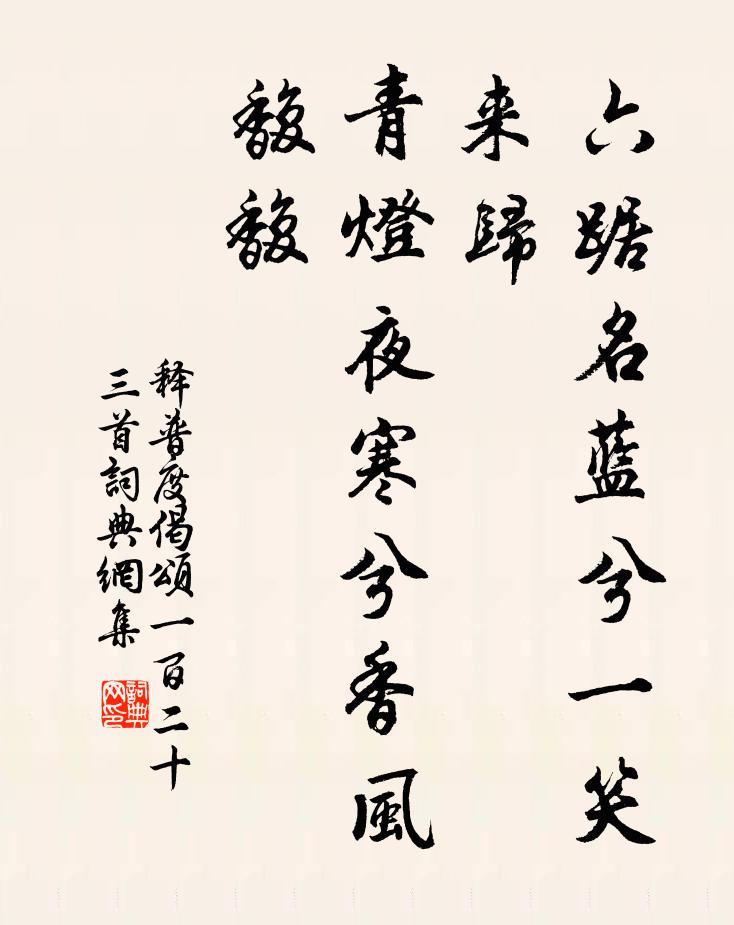 六踞名藍兮一笑
来歸
青燈夜寒兮香風
馥馥
释普度偈頌一百二十
三首詞典網集
詞典
网印